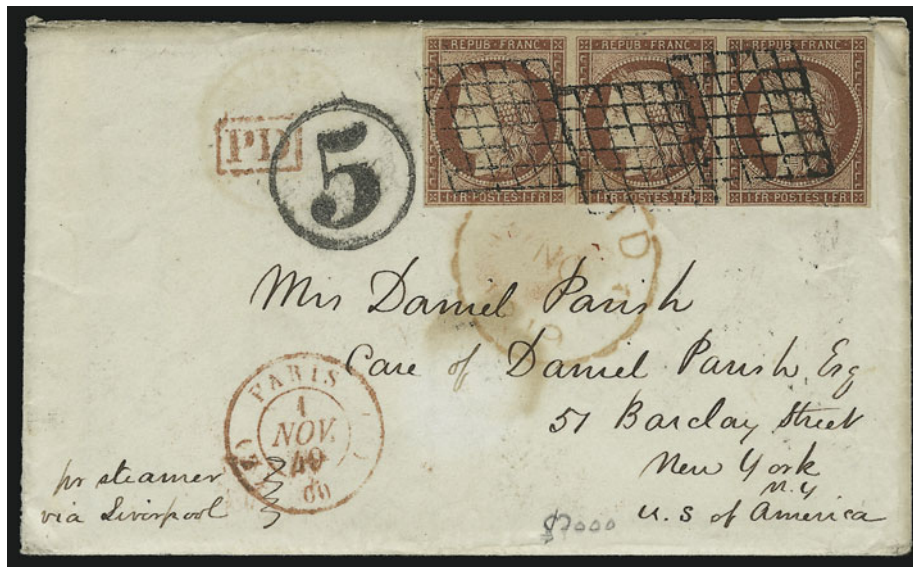 REPUB·FRANC·
REPUB·FRANC·
REPUB·FRANC·
1·FR·POSTES·1·FR
1·FR·POSTES·1·FR
1·FR·POSTES·1·FR
PD
5
NO
Mrs Daniel Parish
Care of Daniel Parish Esq
51 Barclay Street
New York
N.Y
U.S of America
PARIS
1
NOV.
49
(60)
pr steamer
via Liverpool
$7000